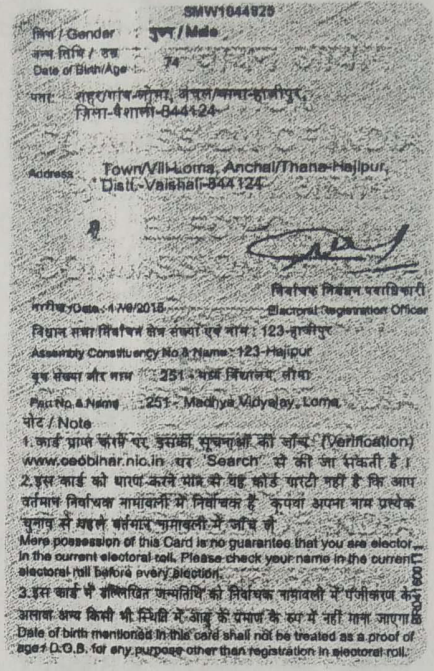 SMW1044825
लिंग / Gender : पुरुष / Male
जन्म तिथि / उम्र
Date of Birth/Age : 74
पता: शहर/गांव-लोमा, अंचल/थाना-हाजीपुर,
जिला-वैशाली-844124
Address : Town/Vill-Loma, Anchal/Thana-Hajipur,
Distt.-Vaishali-844124
निर्वाचक निबंधन पदाधिकारी
तारीख/Date: 17/6/2015 Electoral Registration Officer
विधान सभा निर्वाचन क्षेत्र संख्या एवं नाम : 123-हाजीपुर
Assembly Constituency No & Name : 123-Hajipur
बूथ संख्या और नाम : 251 - मध्य विद्यालय, लोमा
Part No & Name : 251 - Madhya Vidyalay, Loma
नोट / Note
1. कार्ड प्राप्त करने पर, इसकी सूचनाओं की जाँच (Verification)
www.ceobihar.nic.in पर 'Search' से की जा सकती है ।
2. इस कार्ड को धारण करने मात्र से यह कोई गारंटी नहीं है कि आप
वर्तमान निर्वाचक नामावली में निर्वाचक हैं कृपया अपना नाम प्रत्येक
चुनाव से पहले वर्तमान नामावली में जाँच लें
Mere possession of this Card is no guarantee that you are elector
in the current electoral roll. Please check your name in the current
electoral roll before every election.
3. इस कार्ड में उल्लिखित जन्मतिथि को निर्वाचक नामावली में पंजीकरण के
अलावा अन्य किसी भी स्थिति में आयु के प्रमाण के रूप में नहीं माना जाएगा
Date of birth mentioned in this card shall not be treated as a proof of
age / D.O.B. for any purpose other than registration in electoral roll.